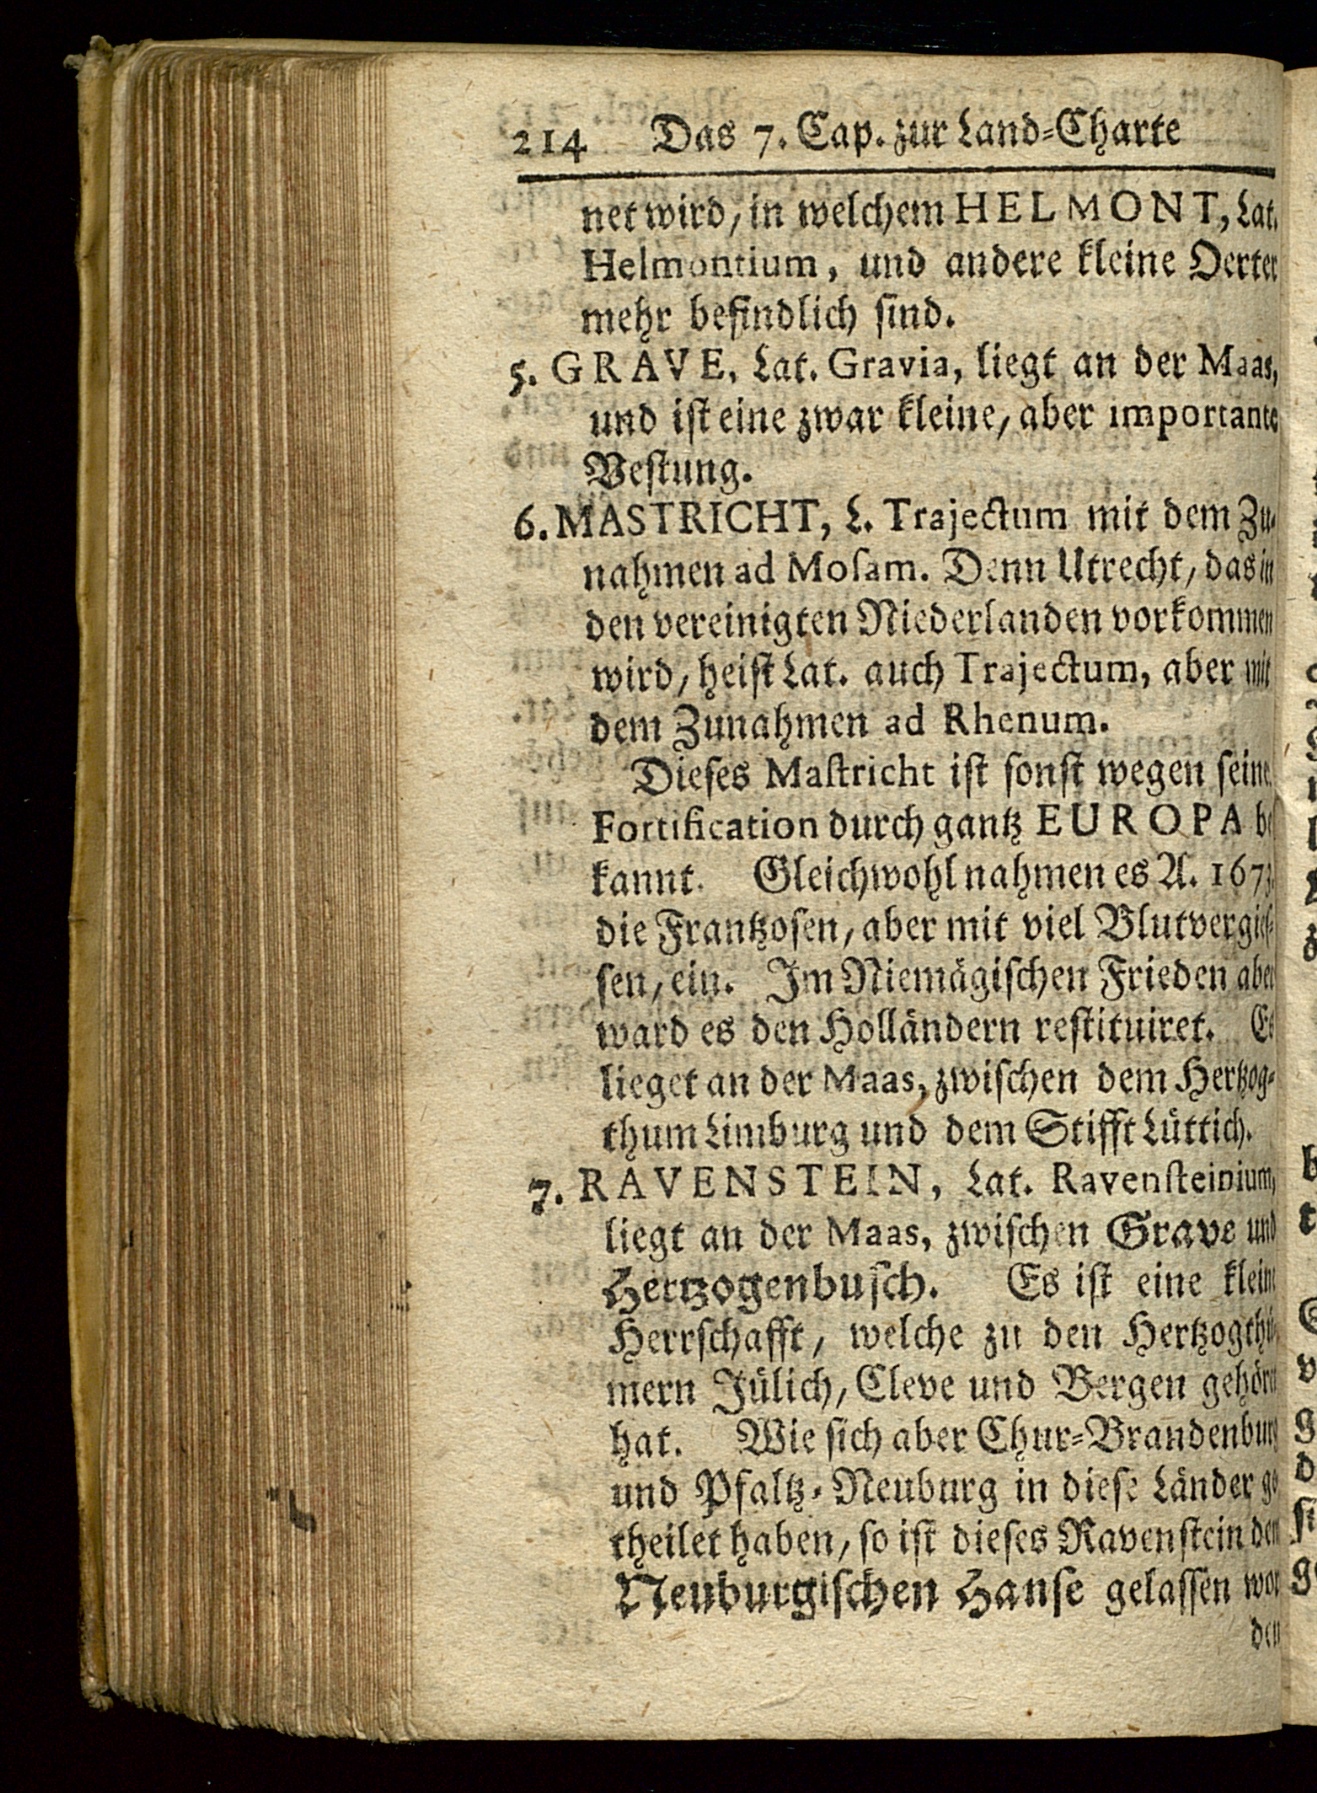 214 Das 7. Cap. zur Land-Charte
net wird/ in welchem HELMONT, Lat.
Helmontium, und andere kleine Oerter
mehr befindlich sind.
5. GRAVE, Lat. Gravia, liegt an der Maas,
und ist eine zwar kleine/ aber importante
Vestung.
6. MASTRICHT, L. Trajectum mit dem Zu-
nahmen ad Mosam. Denn Utrecht/ das in
den vereinigten Niederlanden vorkommen
wird/ heist Lat. auch Trajectum, aber mit
dem Zunahmen ad Rhenum.
Dieses Mastricht ist sonst wegen seine
Fortification durch gantz EUROPA be
kannt. Gleichwohl nahmen es A. 1673.
die Frantzosen/ aber mit viel Blutvergies-
sen/ ein. Im Niemägischen Frieden aber
ward es den Holländern restituiret. Es
lieget an der Maas, zwischen dem Hertzog-
thum Limburg und dem Stifft Lüttich.
7. RAVENSTEIN, Lat. Ravensteinium,
liegt an der Maas, zwischen Grave und
Hertzogenbusch. Es ist eine kleine
Herrschafft/ welche zu den Hertzogthü-
mern Jülich/ Cleve und Bergen gehöret
hat. Wie sich aber Chur-Brandenburg
und Pfaltz-Neuburg in diese Länder ge
theilet haben/ so ist dieses Ravenstein dem
Neuburgischen Hause gelassen wor
den